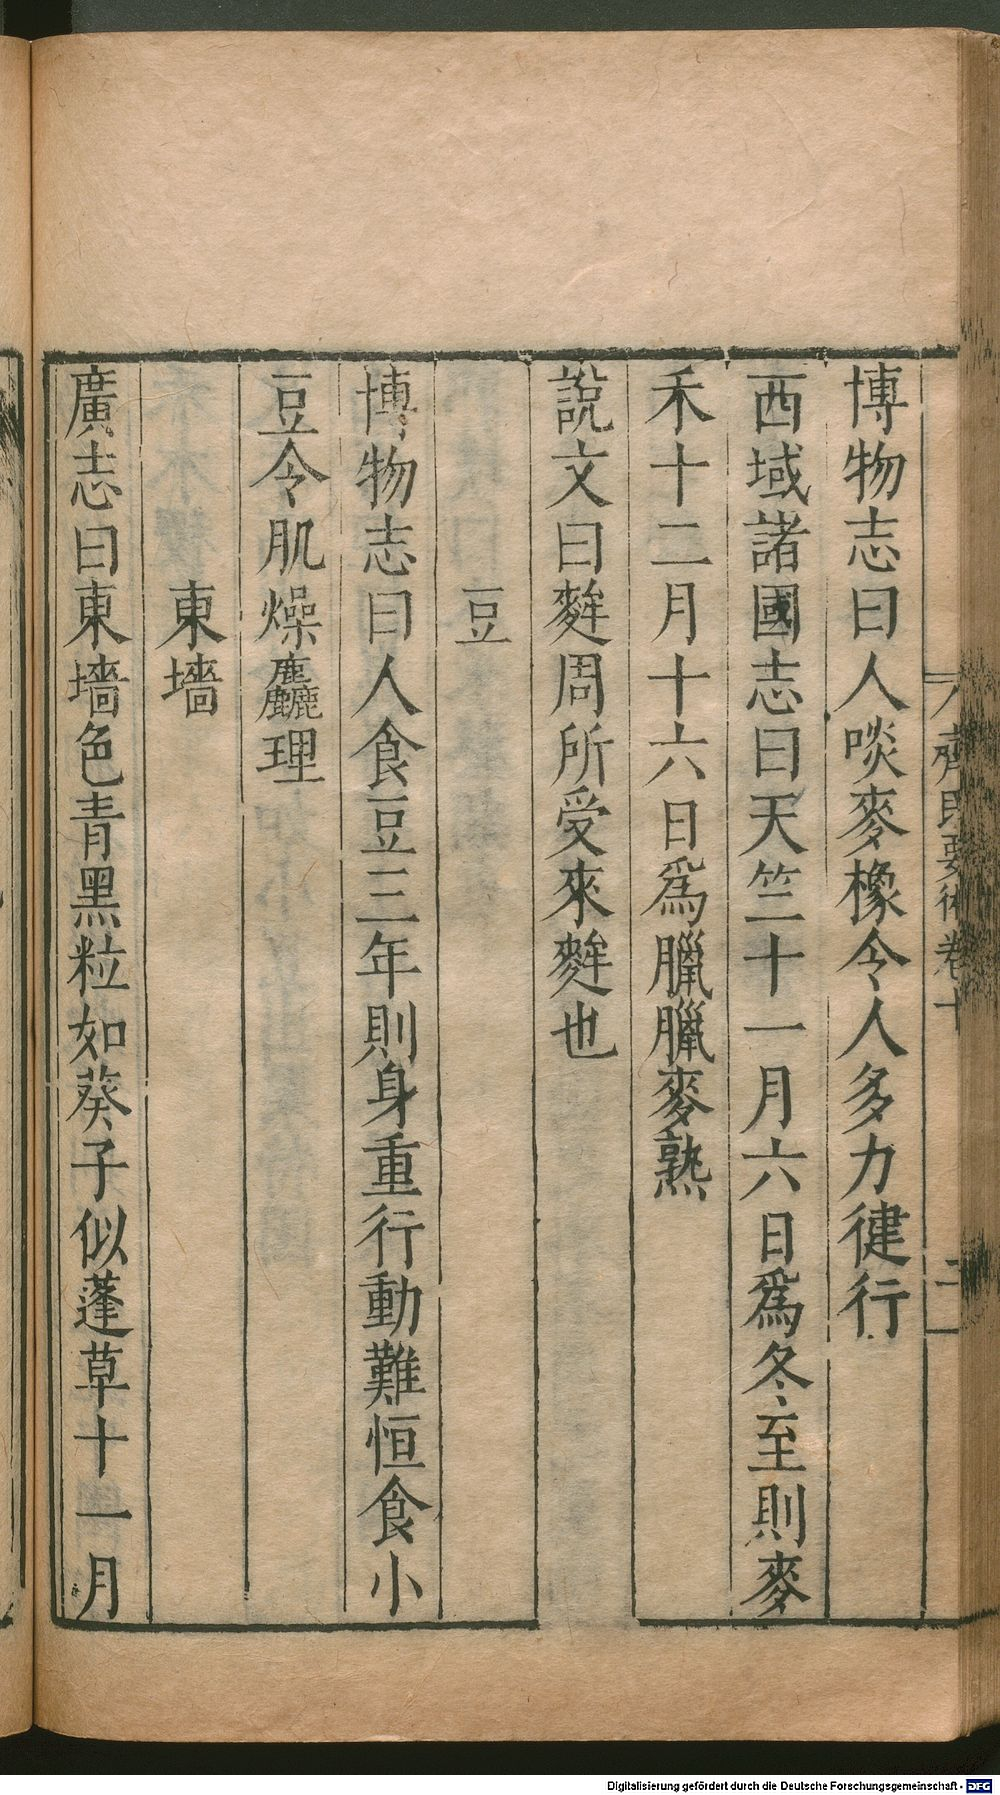 齊民要術卷十 二
博物志曰人啖麥橡令人多力健行
西域諸國志曰天竺十一月六日爲冬至則麥
禾十二月十六日爲臘臘麥熟
說文曰麰周所受來麰也
豆
博物志曰人食豆三年則身重行動難恒食小
豆令肌燥麤理
東墻
廣志曰東墻色青黑粒如葵子似蓬草十一月
Digitalisierung gefördert durch die Deutsche Forschungsgemeinschaft - DFG